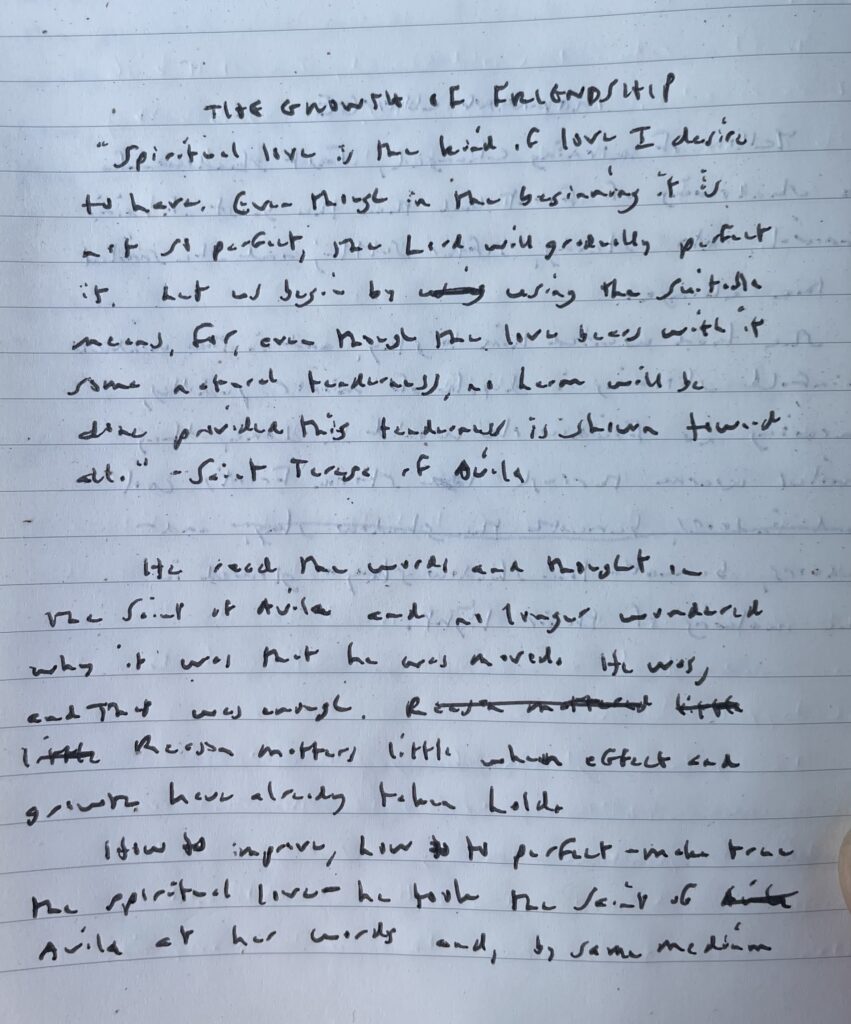 THE GROWTH OF FRIENDSHIP
"Spiritual love is the kind of love I desire
to have. Even though in the beginning it is
not so perfect, the Lord will gradually perfect
it. Let us begin by using using the suitable
means, for, even though the love bears with it
some natural tenderness, no harm will be
done provided this tenderness is shown toward
all." - Saint Teresa of Avila
He read the words and thought on
the Saint of Avila and no longer wondered
why it was that he was moved. He was,
and that was enough. Reason mattered little
little Reason matters little when effect and
growth have already taken hold.
How to improve, how to to perfect - make true
the spiritual love - he took the Saint of Avila
Avila at her words and, by same medium